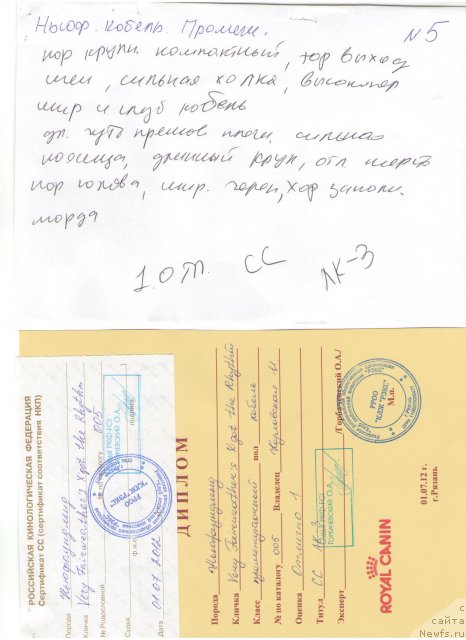 Ньюф. кобель Промеж. №5
пор крупн. компактный, хор выход
шеи, сильная холка, высокопер
шир и глуб кобель
дл. чуть прямов плечи, сильная
поясница, длинный круп, отл шерсть
пор голова, шир. череп, хор заполн.
морда
1. отл. CC ЛК-3
РОССИЙСКАЯ КИНОЛОГИЧЕСКАЯ ФЕДЕРАЦИЯ
Сертификат СС (сертификат соответствия НКП)
Порода Ньюфаундленд
Кличка Very Fairweather's X got the Rhythm
№ Родословной 005
Судья
Дата 01.07.2012
подпись
РРОО "КДЖ "РЭКС"
ДИПЛОМ
Порода Ньюфаундленд
Кличка Very Fairweather's X got the Rhythm
Класс промежуточный пол кобель
№ по каталогу 005 Владелец
Оценка Отлично 1
Титул CC ЛК-3
Эксперт /Горбачевский О.А./
Судья РКФ-FCI
ГОРБАЧЕВСКИЙ О.А.
РРОО "КДЖ "РЭКС"
М.п.
ROYAL CANIN
01.07.12 г.
г.Рязань
с сайта
Newfs.ru